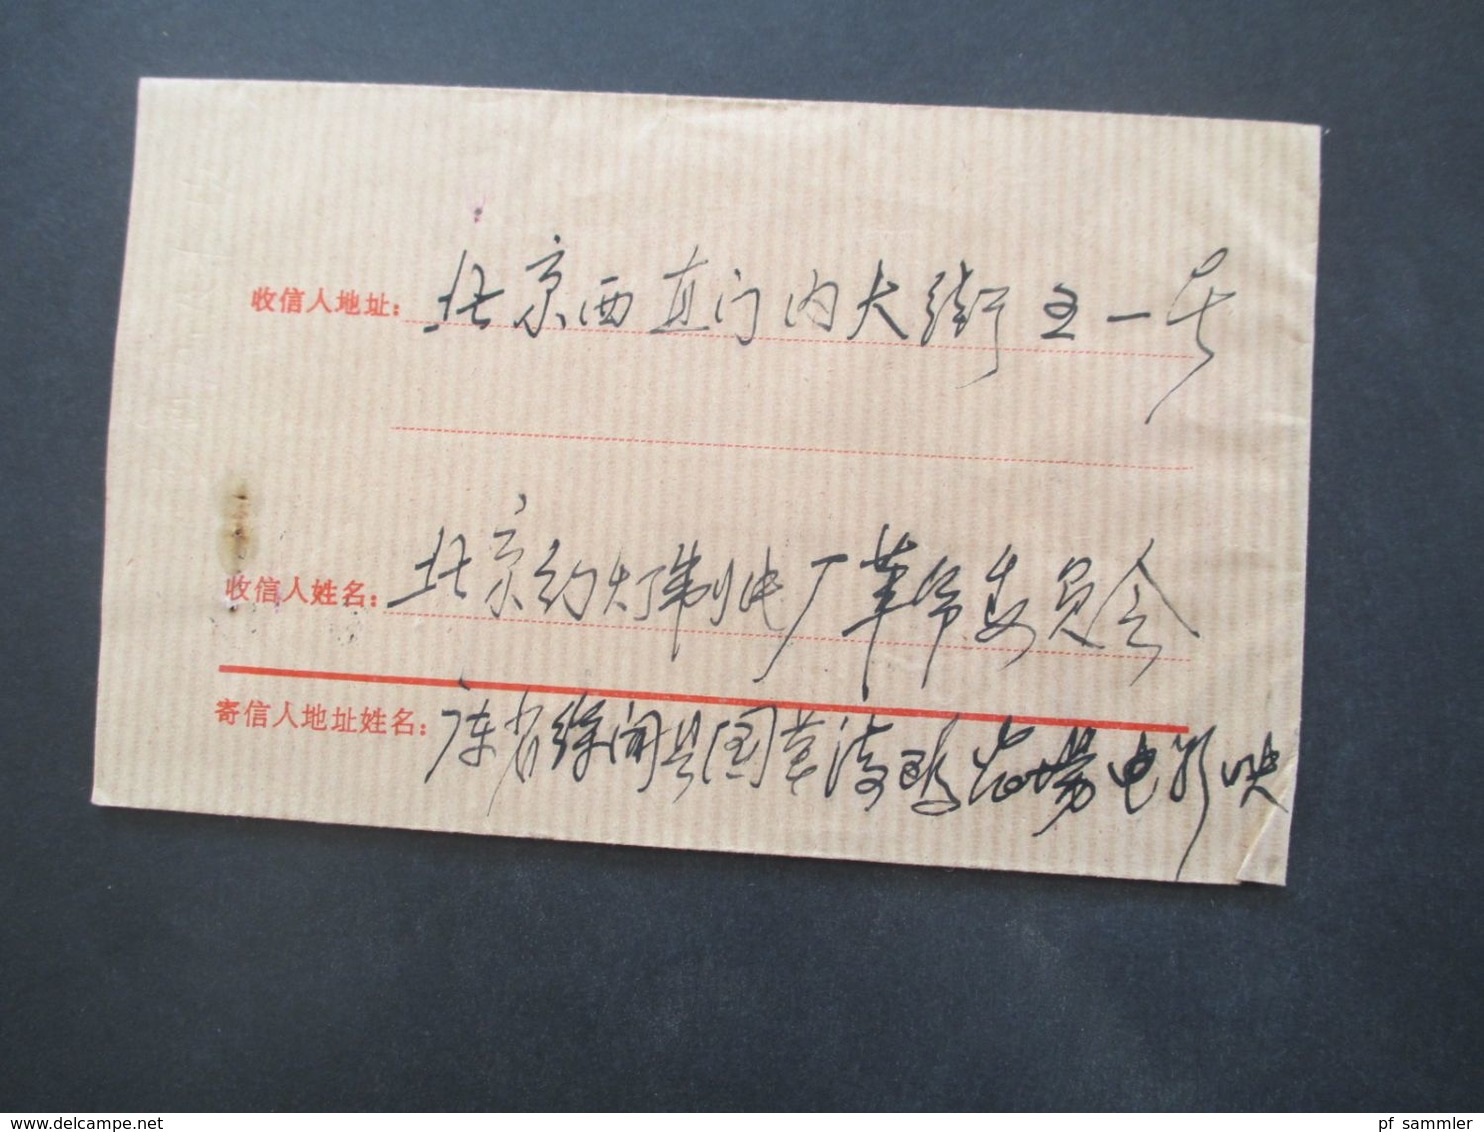 收信人地址: 北京西直门内大街五一号
收信人姓名: 北京幻灯制片厂革命委员会
寄信人地址姓名: 广东省徐闻县国营 农場电影
delcampe.net
pf_sammler